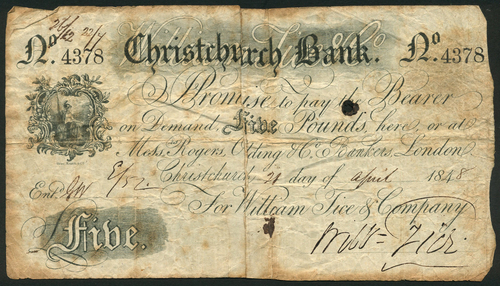 22/7
No. 4378 Christchurch Bank. No. 4378
I Promise to pay the Bearer
on Demand, Five Pounds, here, or at
Messrs. Rogers, Olding & Co. Bankers, London.
Christchurch 21 day of April 1848
Entd.
For William Tice & Company
Five.
Willm Tice